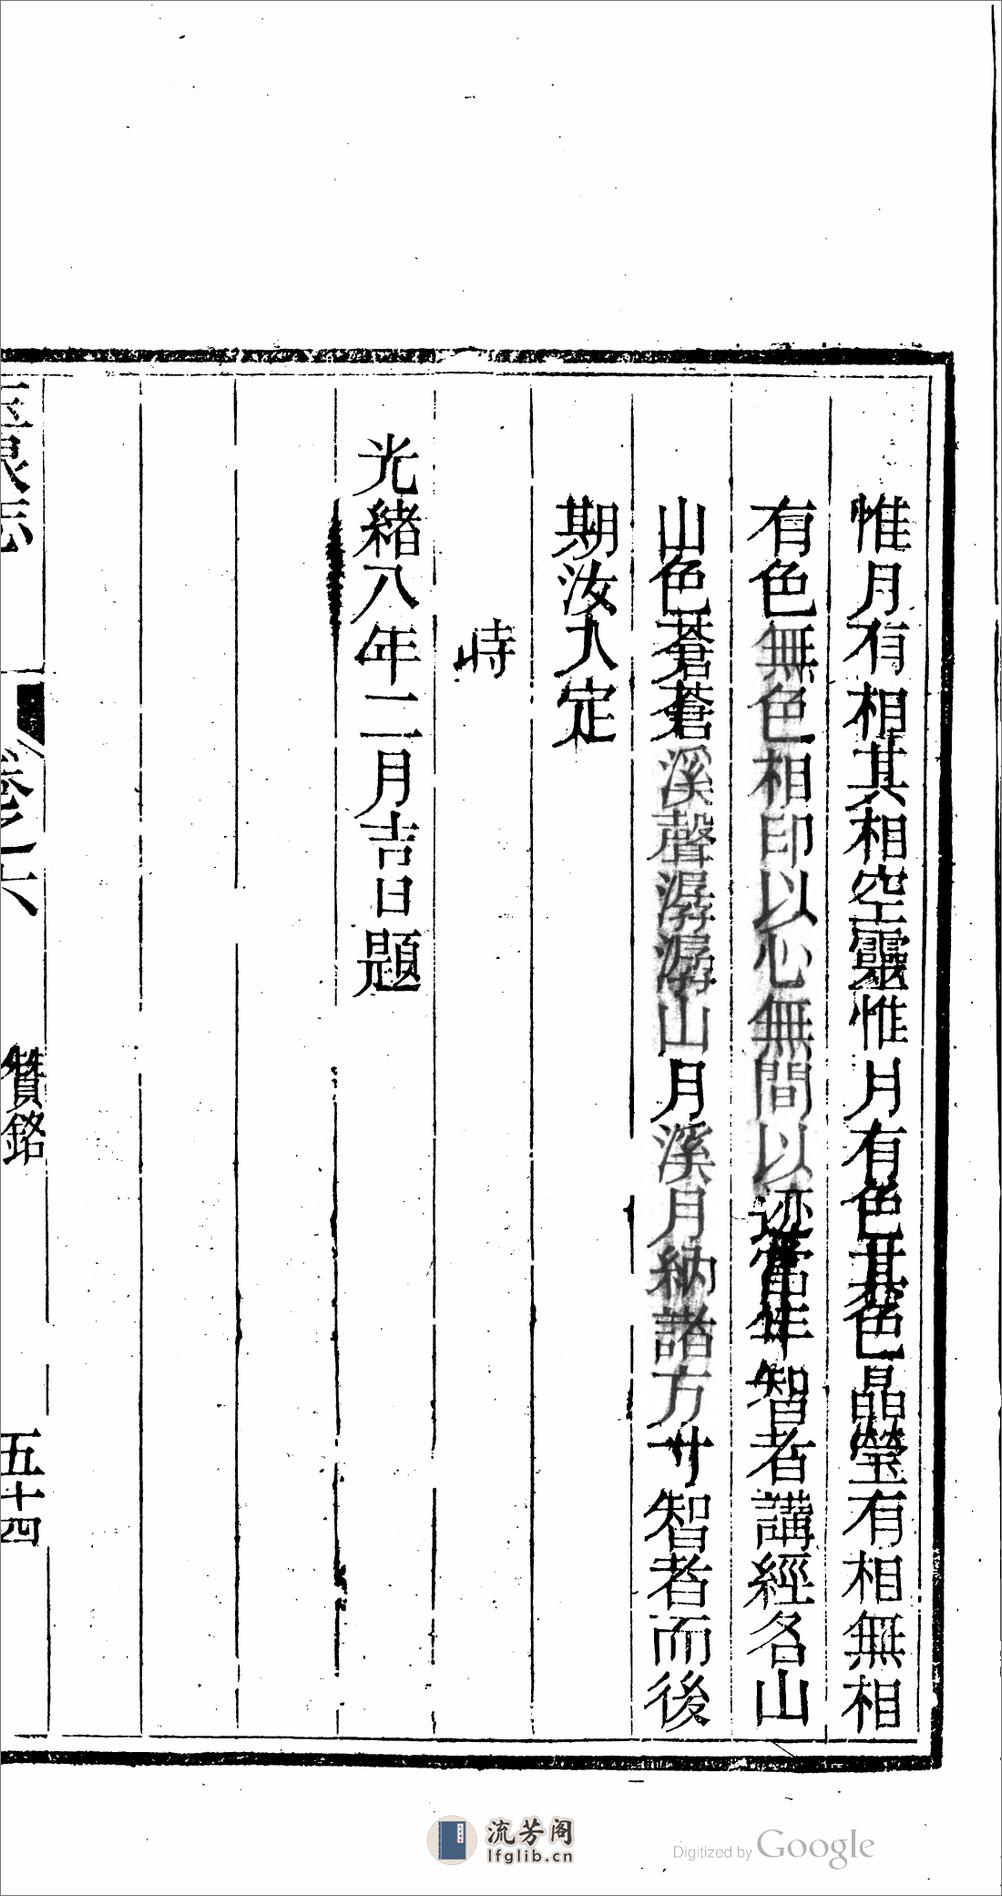 惟月有相其相空靈惟月有色其色晶瑩有相無相
有色無色相印以心無間以迹當年智者講經名山
山色蒼蒼溪聲潺潺山月溪月納諸方寸智者而後
期汝入定
時
光緒八年二月吉日題
玉泉志
卷之六
贊銘
五十四
流芳阁
lfglib.cn
Digitized by Google